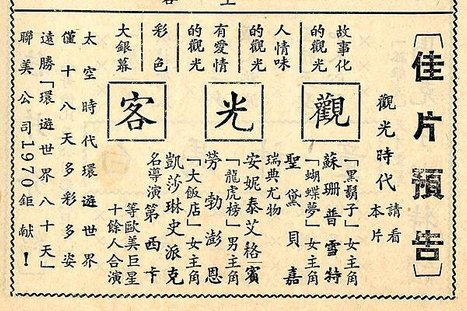 士 客
【佳片預告】
觀光時代 請看本片
觀光客
故事化的觀光
人情味的觀光
有愛情的觀光
彩色
大銀幕
「黑鬍子」女主角
蘇珊普雪特
「蝴蝶夢」女主角
聖黛貝嘉
瑞典尤物
安妮泰艾格賓
「龍虎榜」男主角
勞勃彭恩
「大飯店」女主角
凱莎琳史派克
名導演第西卡
等歐美巨星
十餘人合演
太空時代環遊世界
僅十八天多彩多姿
遠勝「環遊世界八十天」
聯美公司1970鉅獻！